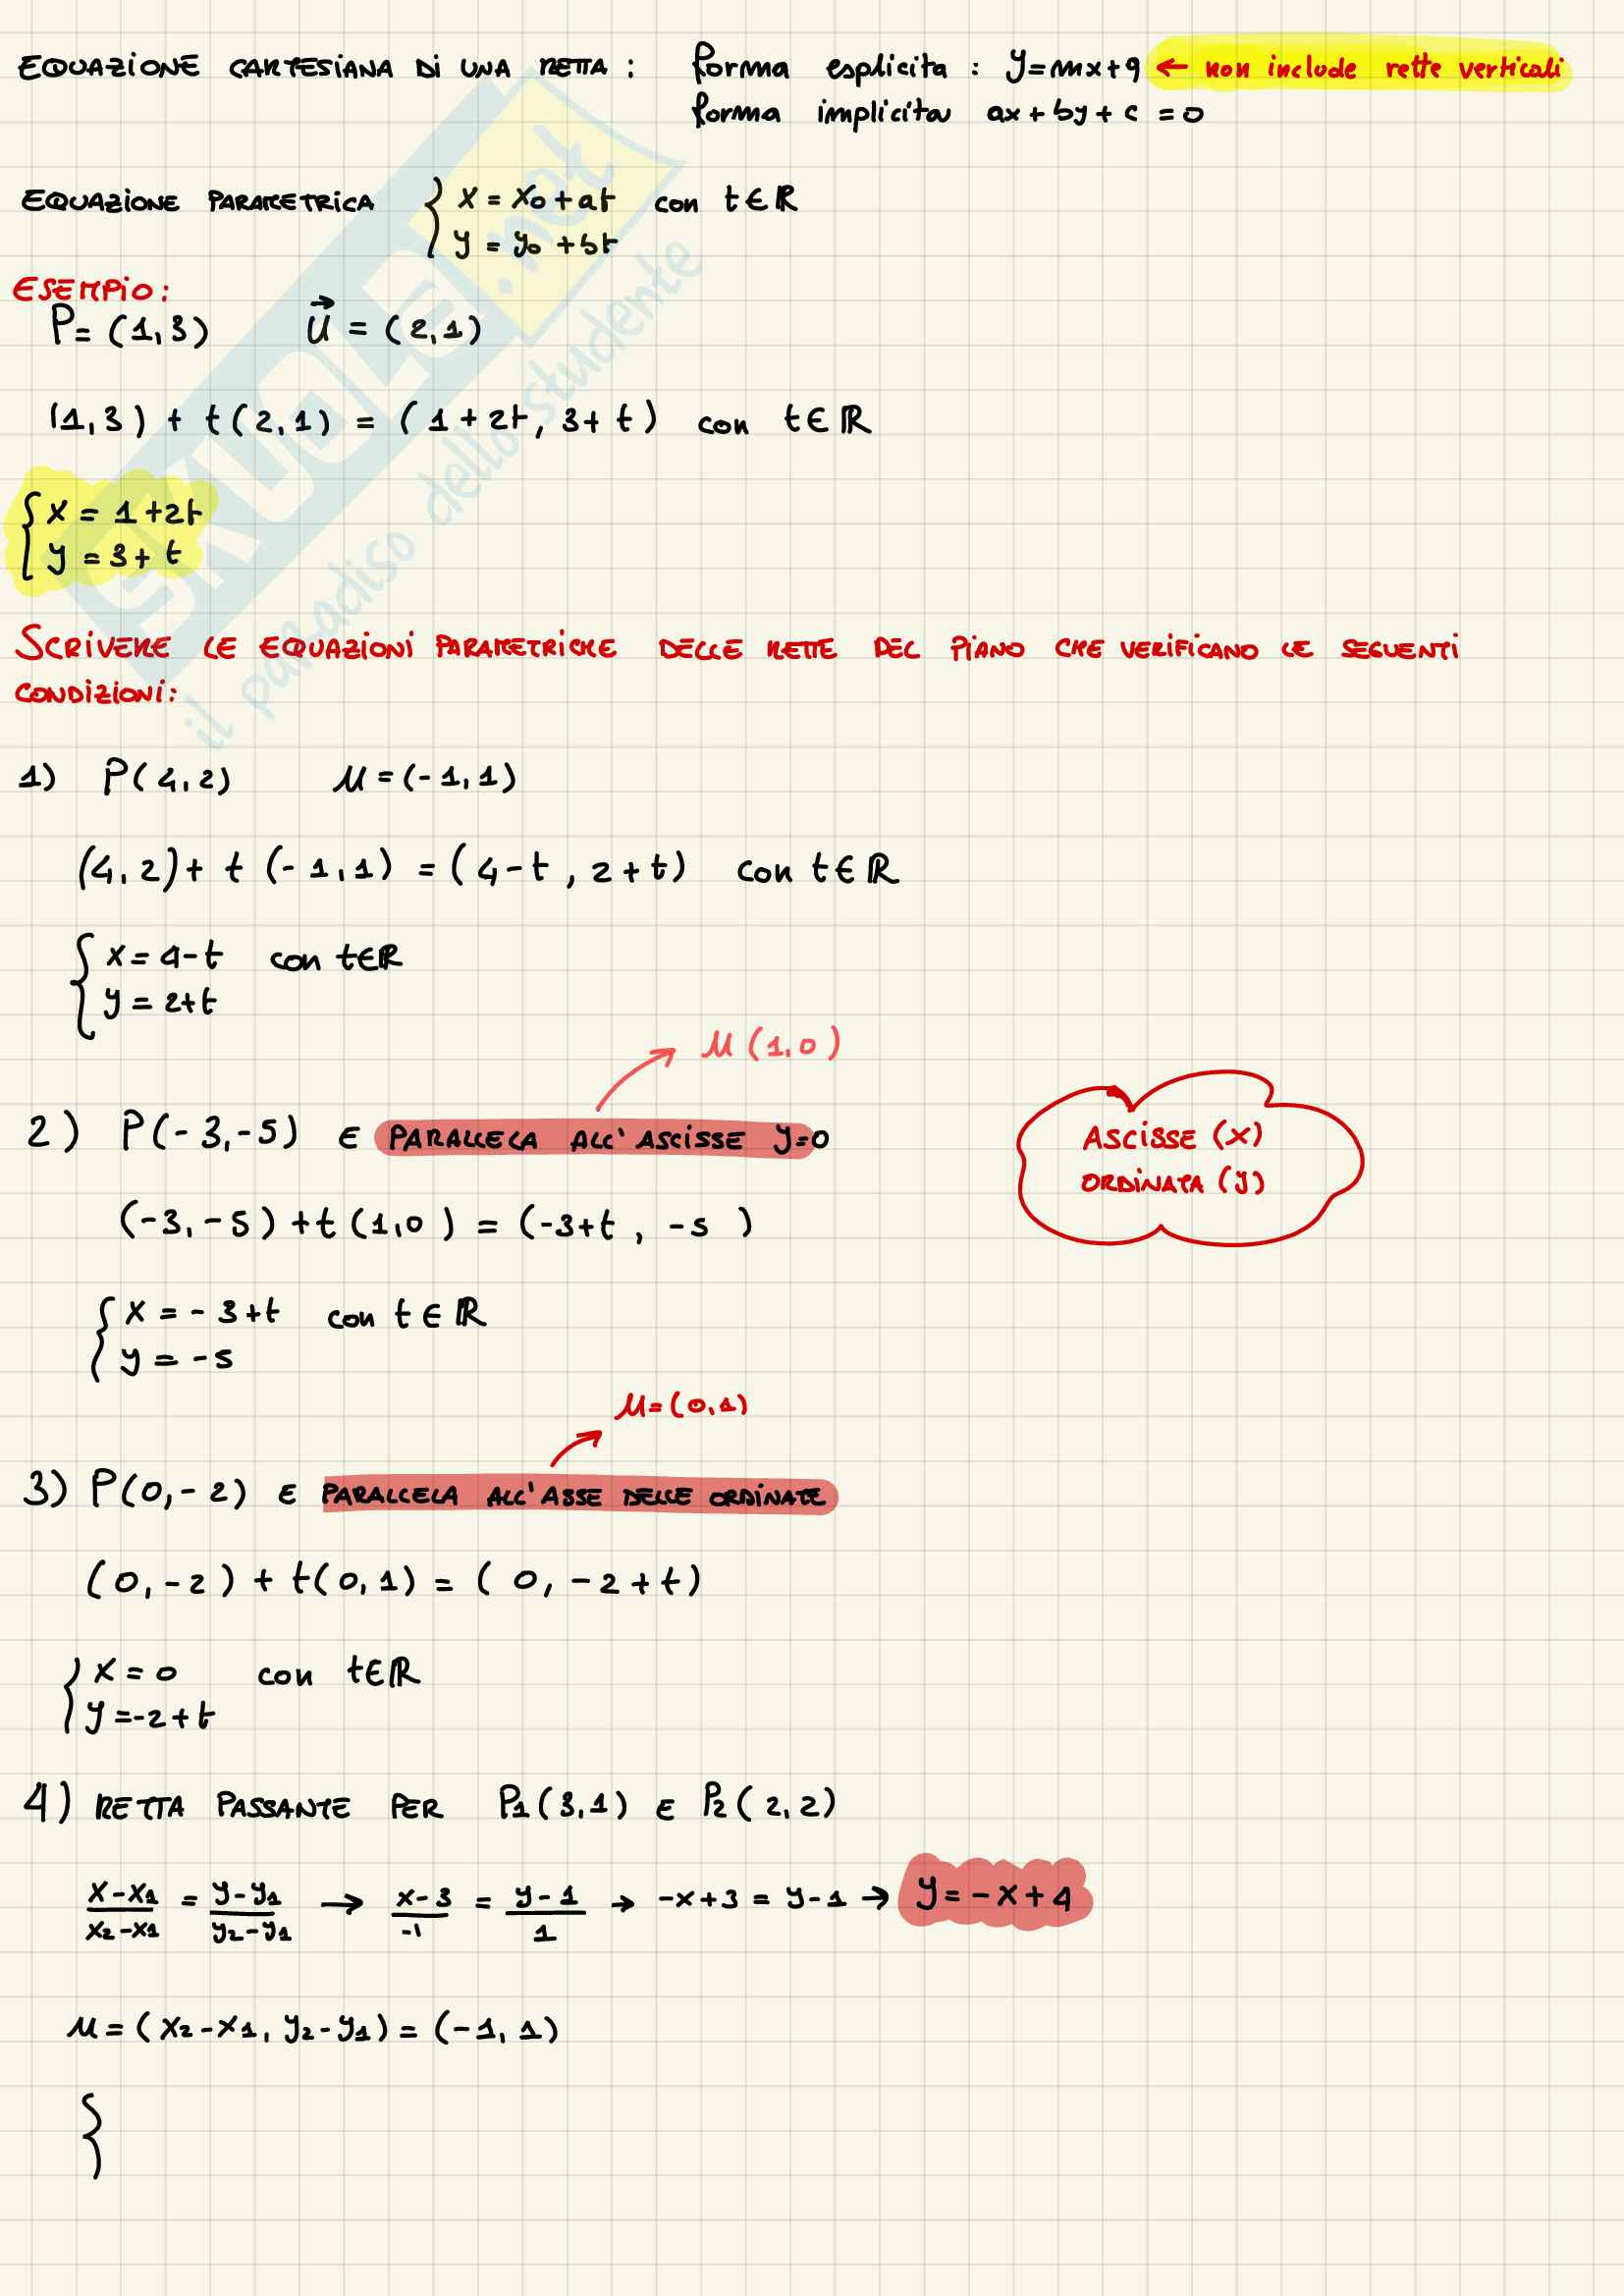 EQUAZIONE CARTESIANA Di UNA RETTA : forma esplicita : y=mx+q ← non include rette verticali
forma implicita ax+by+c=0
EQUAZIONE PARAMETRICA { x = x₀+at con t∈ℝ
y = y₀+bt
ESEMPIO:
P=(1,3) u⃗ = (2,1)
(1,3) + t(2,1) = (1+2t, 3+t) con t∈ℝ
{ x = 1+2t
y = 3+t
SCRIVERE LE EQUAZIONI PARAMETRICHE DELLE RETTE DEL PIANO CHE VERIFICANO LE SEGUENTI
CONDIZIONI:
1) P(4,2) u=(-1,1)
(4,2)+ t (-1,1) = (4-t, 2+t) con t∈ℝ
{ x=4-t con t∈ℝ
y=2+t
u(1,0)
2) P(-3,-5) E PARALLELA ALL'ASCISSE y=0
ASCISSE (x)
ORDINATA (y)
(-3,-5)+t(1,0) = (-3+t, -5)
{ x = -3+t con t∈ℝ
y = -5
u=(0,1)
3) P(0,-2) E PARALLELA ALL'ASSE DELLE ORDINATE
(0,-2) + t(0,1) = (0, -2+t)
{ x=0 con t∈ℝ
y=-2+t
4) RETTA PASSANTE PER P₁(3,1) E P₂(2,2)
x-x₁/x₂-x₁ = y-y₁/y₂-y₁ → x-3/-1 = y-1/1 → -x+3 = y-1 → y=-x+4
u=(x₂-x₁, y₂-y₁)=(-1,1)
{
SKUOLA.net
il paradiso dello studente